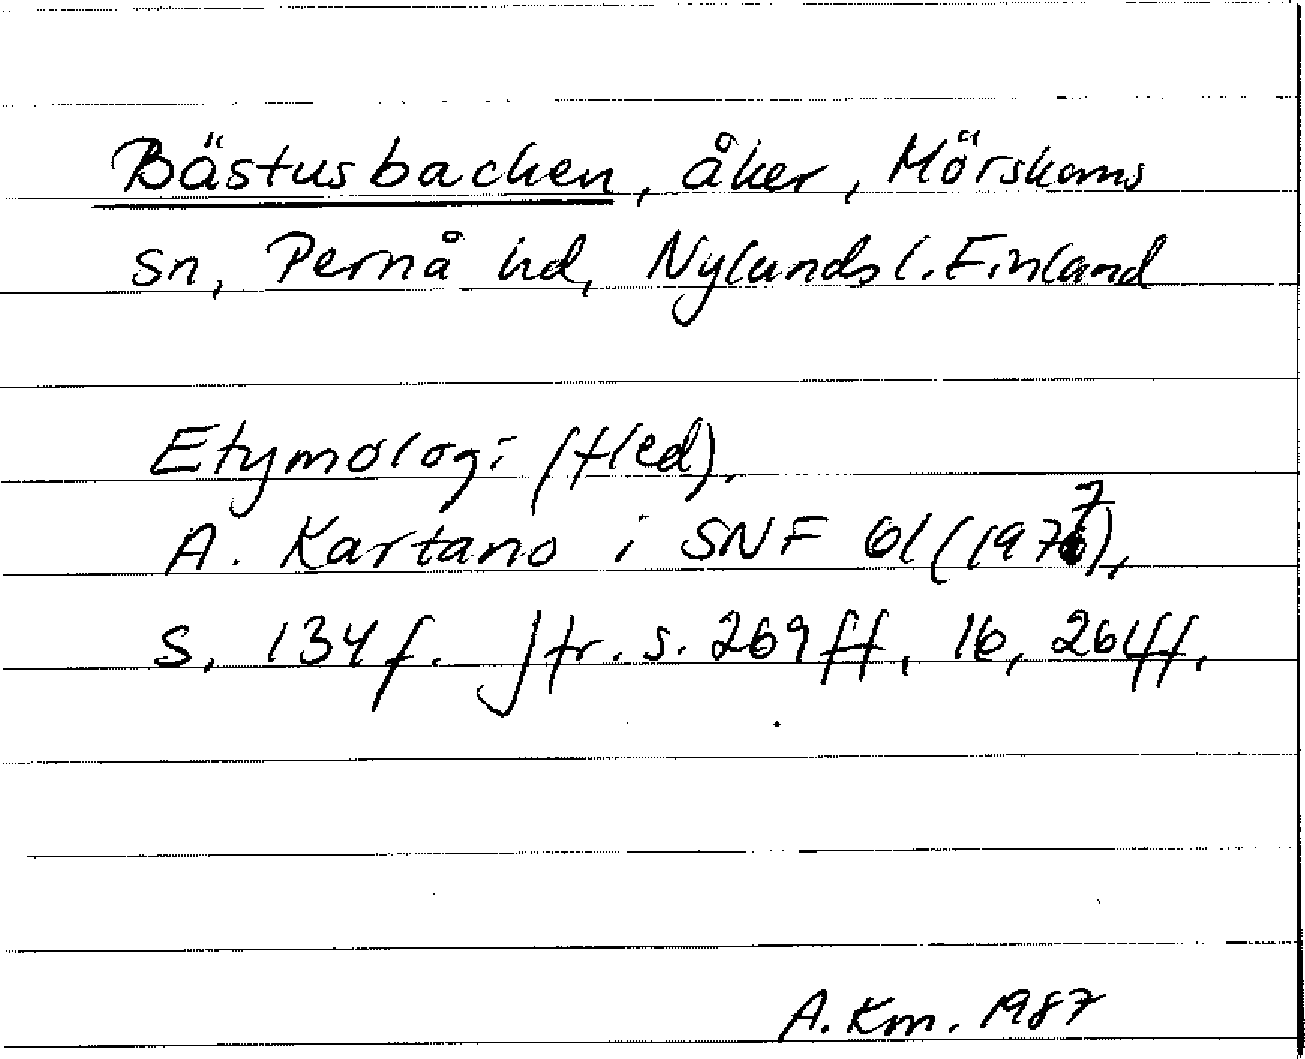 Bästusbacken, åker, Mörskoms
sn, Pernå hd, Nylands l. Finland
Etymologi (fled).
A. Kartano i SNF 61 (1977),
s. 134 f. Jfr. s. 269 ff, 16, 261 ff.
A. Km. 1987